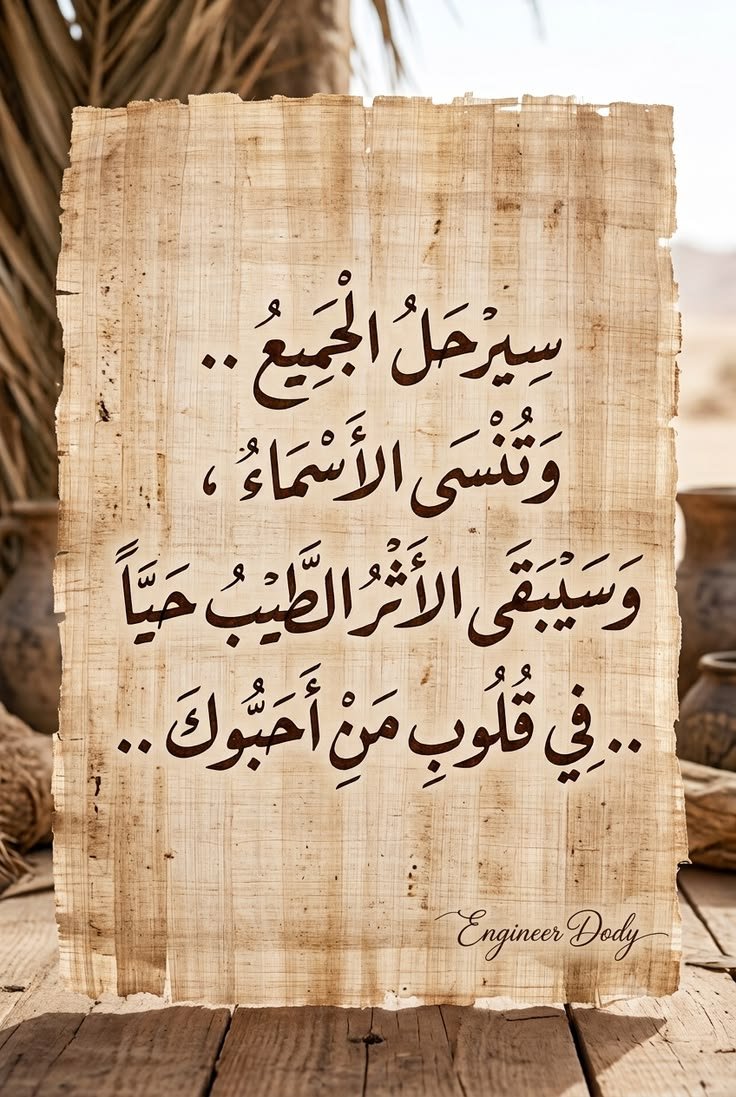 سِيرْحَلُ الْجَمِيعُ ..
وَتُنْسَى الأَسْمَاءُ ،
وَسَيْبَقَى الأَثْرُ الطَّيْبُ حَيَّاً
.. فِي قُلُوبِ مَنِْ أَحَبُّوكَ ..
Engineer Dody